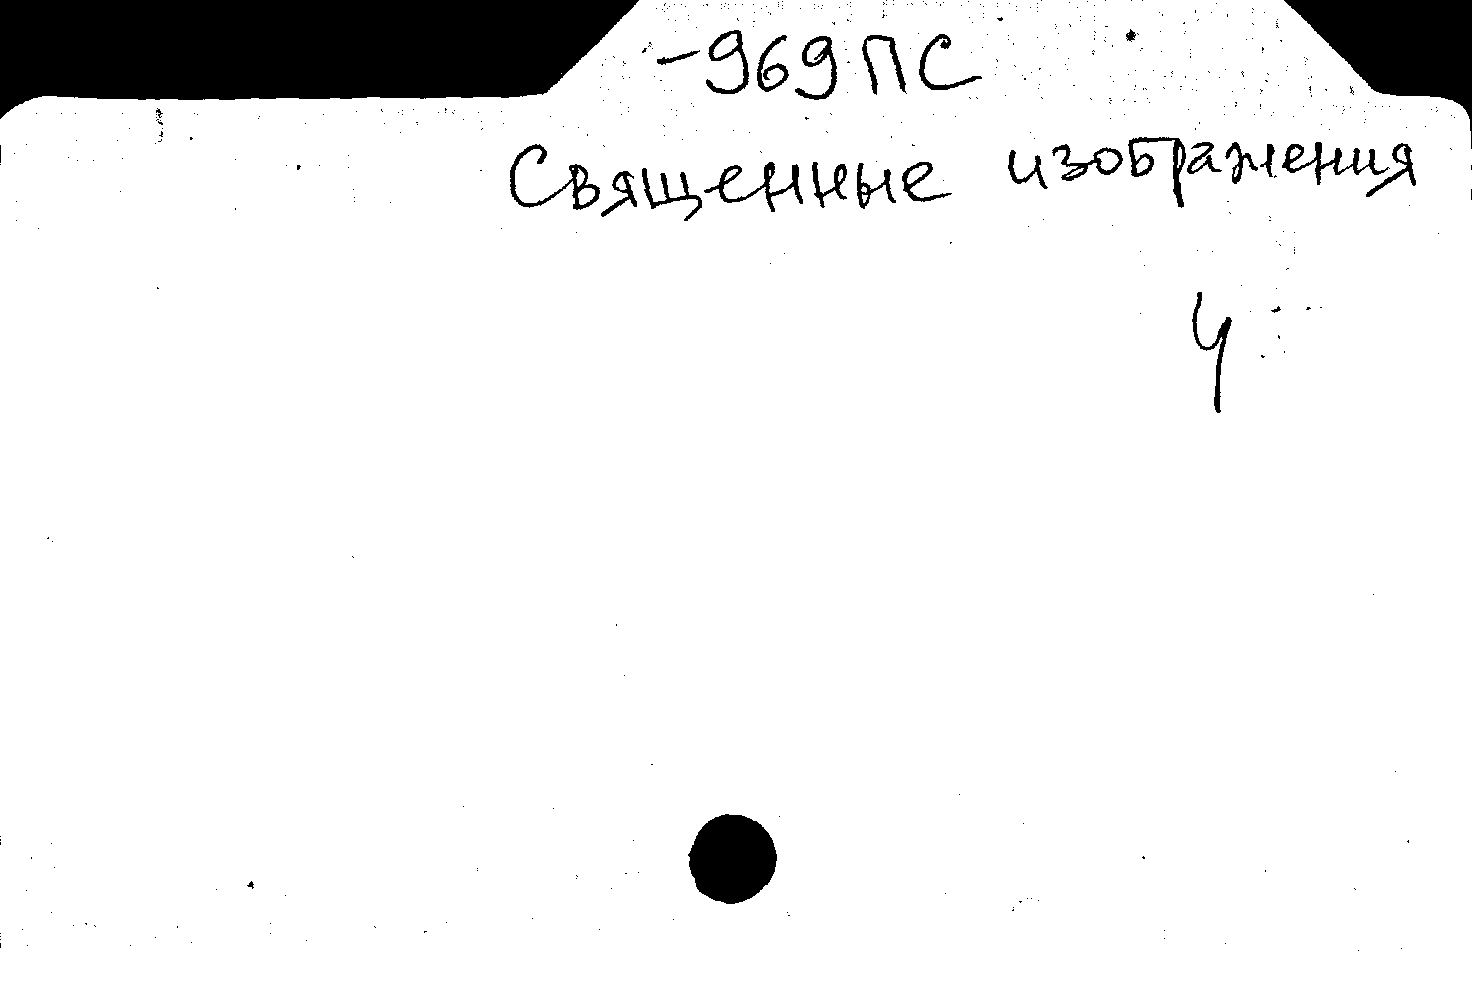 -969 ПС
Священные изображения
Ч